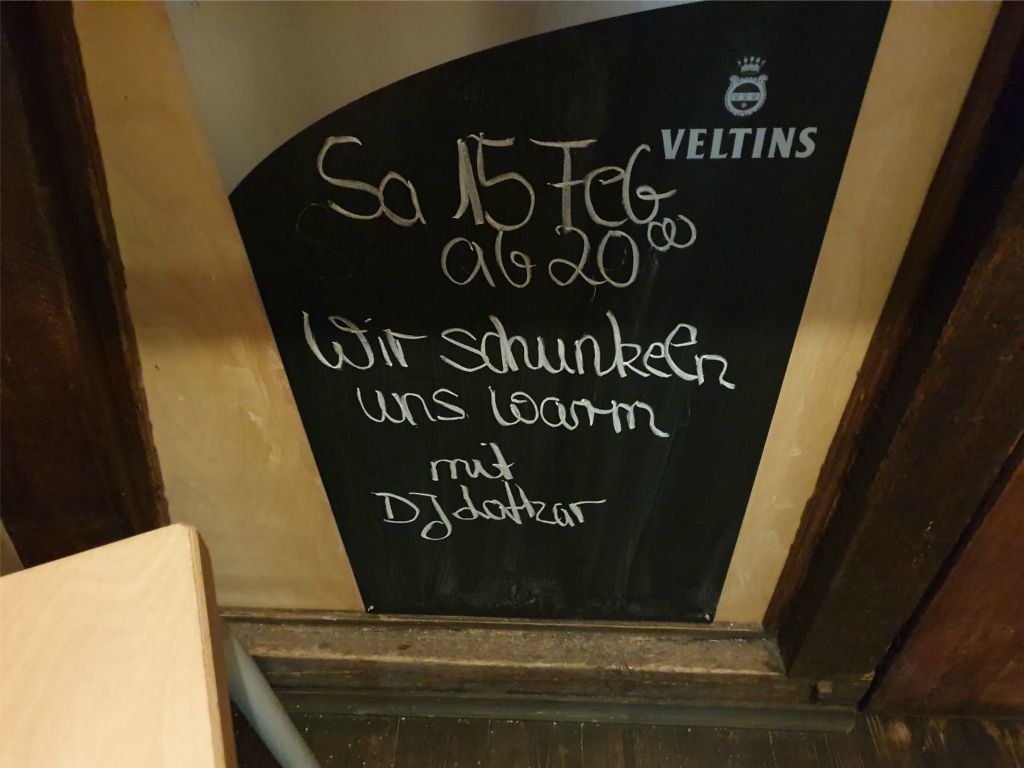 VELTINS
Sa 15 Feb
ab 20⁰⁰
Wir schunkeln
uns warm
mit
DJ Lothar